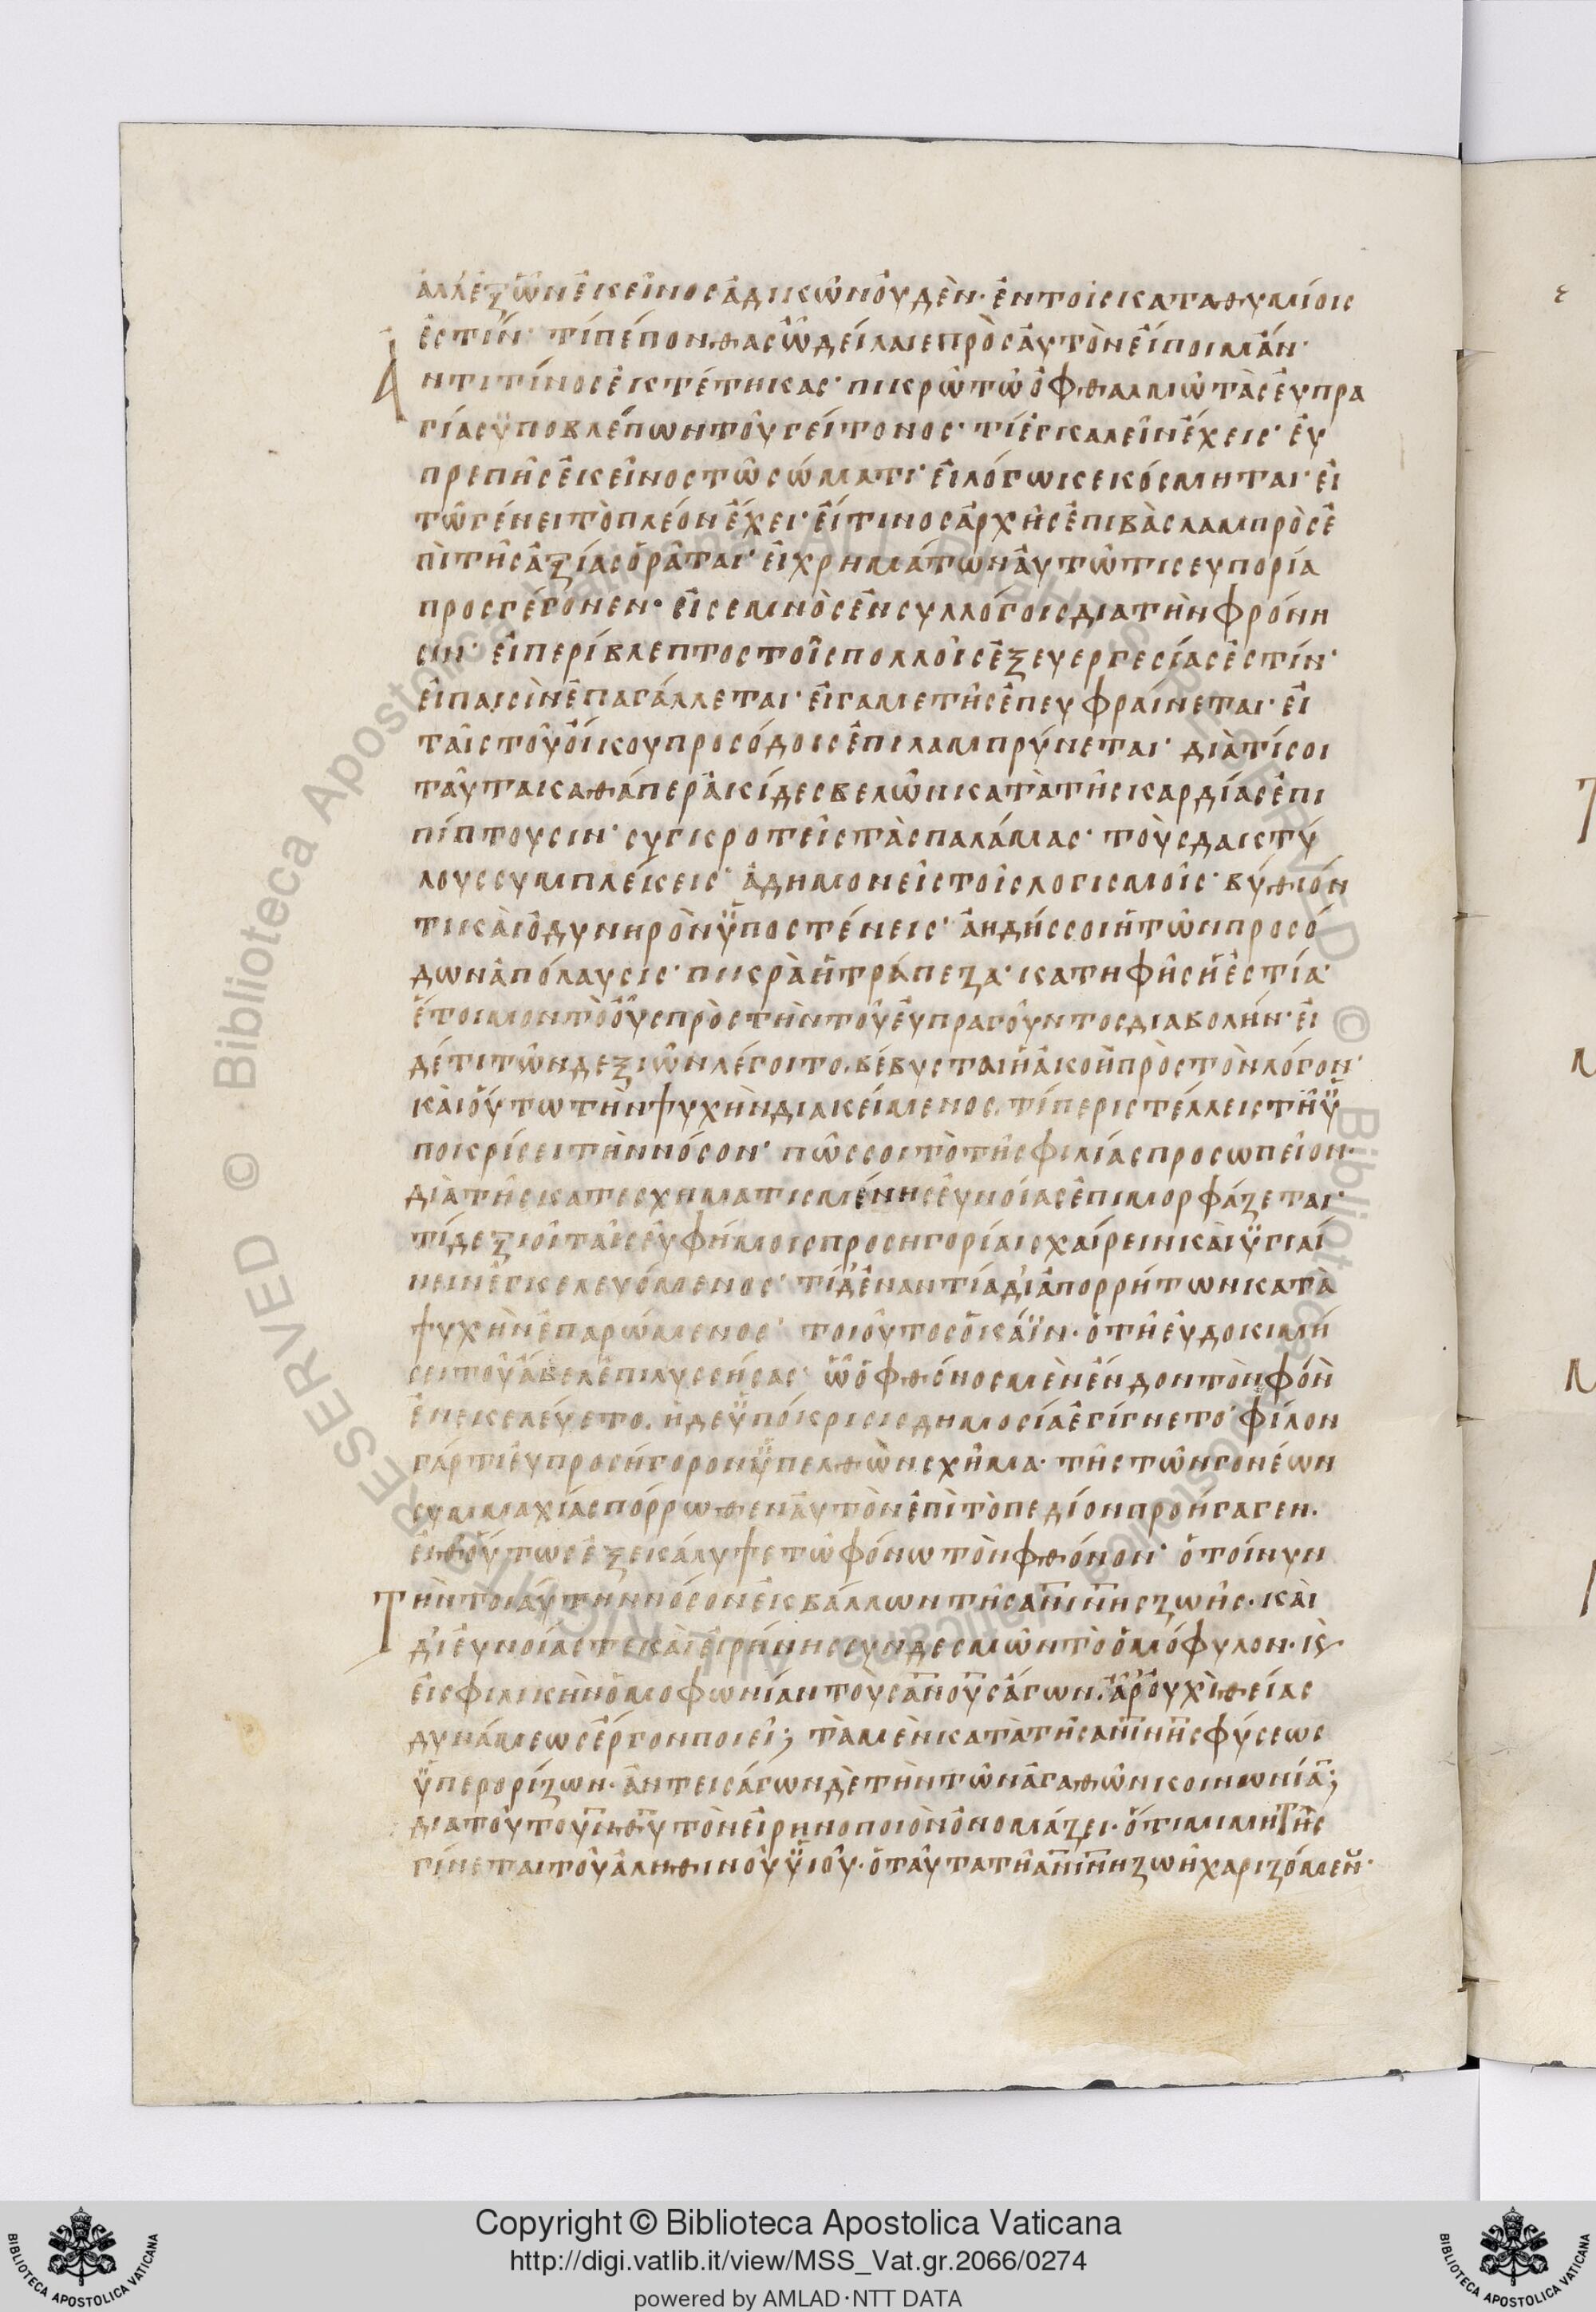 ἀλλ' ἐξ ὧν ἐκεῖνος ἀδικῶν οὐδὲν· ἐν τοῖς καταθυμίοις
ἐστίν· τί πέπονθας ὦ δείλαιε πρὸς αὐτὸν εἴποιμ' ἄν·
Ἀντι τίνος ἐκτέτηκας· πικρῶ τῶ ὀφθαλμῶ τὰς εὐπρα
γίας ὑποβλέπων τοῦ γείτονος· τί ἐγκαλεῖν ἔχεις· εὐ
πρεπὴς ἐκεῖνος τῶ σώματι· εἰ λόγωι κεκόσμηται· εἰ
τῶ γένει τὸ πλέον ἔχει· εἴ τινος ἀρχῆς ἐπιβὰς λαμπρὸς ἐ
πὶ τῆς ἀξίας ὁρᾶται· εἰ χρημάτων αὐτῶ τις εὐπορία
προσγέγονεν· εἰ σεμνὸς ἐν συλλόγοις διατὴν φρόνη
σιν· εἰ περίβλεπτος τοῖς πολλοῖς ἐξ ευεργεσίας ἐστίν·
εἰ παισὶν ἐπαγάλλεται· εἰ γαμετῆς ἐπευφραίνεται· εἰ
ταῖς τοῦ οἴκου προσόδοις ἐπιλαμπρύνεται· διὰ τί σοι
ταῦτα καθάπερ ἀκίδες βελῶν κατὰ τῆς καρδίας ἐπι
πίπτουσιν· συγκροτεῖς τὰς παλάμας· τοὺς δακτύ
λους συμπλέκεις· ἀδημονεῖς τοῖς λογισμοῖς· βύθιόν
τι καὶ ὀδυνηρὸν ὑποστένεις· ἀνδής σοι ἡ τῶν προσό
δων ἀπόλαυσις· πικρὰ ἡ τράπεζα· κατηφὴς ἡ ἑστία·
ἕτοιμον τὸ οὖς πρὸς τὴν τοῦ εὐπραγοῦντος διαβολήν· εἰ
δέ τι τῶν δεξιῶν λέγοιτο, βέβυσται ἡ ἀκοὴ πρὸς τὸν λόγον·
καὶ οὕτω τὴν ψυχὴν διακείμενος, τί περιστέλλεις τῆ ὑ
ποκρίσει τὴν νόσον· πῶς σοι τὸ τῆς φιλίας προσωπεῖον·
διὰ τῆς κατεσχηματισμένης εὐνοίας ἐπιμορφάζεται·
τί δεξιοῖ ταῖς εὐφήμοις προσηγορίαις χαίρειν καὶ ὑγιαί
νειν ἐγκελευόμενος· τί δ' ἐναντία δι' ἀπορρήτων κατὰ
ψυχὴν ἐπαρώμενος· τοιοῦτος ὁ κάϊν· ὁ τῆ εὐδοκιμή
σει τοῦ ἄβελ ἐπιλυσσήσας· ὧ ὁ φθόνος μὲν ἔνδον τὸν φόν
ἐνεκελεύετο. ἡ δε ὑπόκρισις δημοσία ἐγίγνετο· φίλον
γάρ τι εὐπροσήγορον ὑπελθὼν σχῆμα· τῆς τῶν γονέων
συμμαχίας πόρρωθεν αὐτὸν ἐπὶ τὸ πεδίον προήγαγεν.
εἶθ' οὕτως ἐξεκάλυψε τῶ φόνω τὸν φθόνον· ὁ τοίνυν
Τὴν τοιαύτην νόσον ἐκβάλλων τῆς ἀνίνης ζωῆς· καὶ
δι' εὐνοίας τε καὶ εἰρήνης συνδεσμῶν τὸ ὁμόφυλον· κ
εἰς φιλικὴν ὁμοφωνίαν τοὺς ἀνους ἄγων· ἆρ' οὐχὶ θείας
δυνάμεως ἔργον ποιεῖ; τὰ μὲν κατὰ τῆς ἀνίνης φύσεως
ὑπερορίζων· ἀντεισάγων δὲ τὴν τῶν ἀγαθῶν κοινωνία;
διατοῦτο υιν θυ τὸν εἰρηνοποιὸν ὀνομάζει· ὅτι μιμητὴς
γίνεται τοῦ ἀληθινοῦ ὑιοῦ· ὁ ταῦτα τῆ ἀνίνη ζωῆ χαριζόμεν·
Copyright © Biblioteca Apostolica Vaticana
http://digi.vatlib.it/view/MSS_Vat.gr.2066/0274
powered by AMLAD·NTT DATA